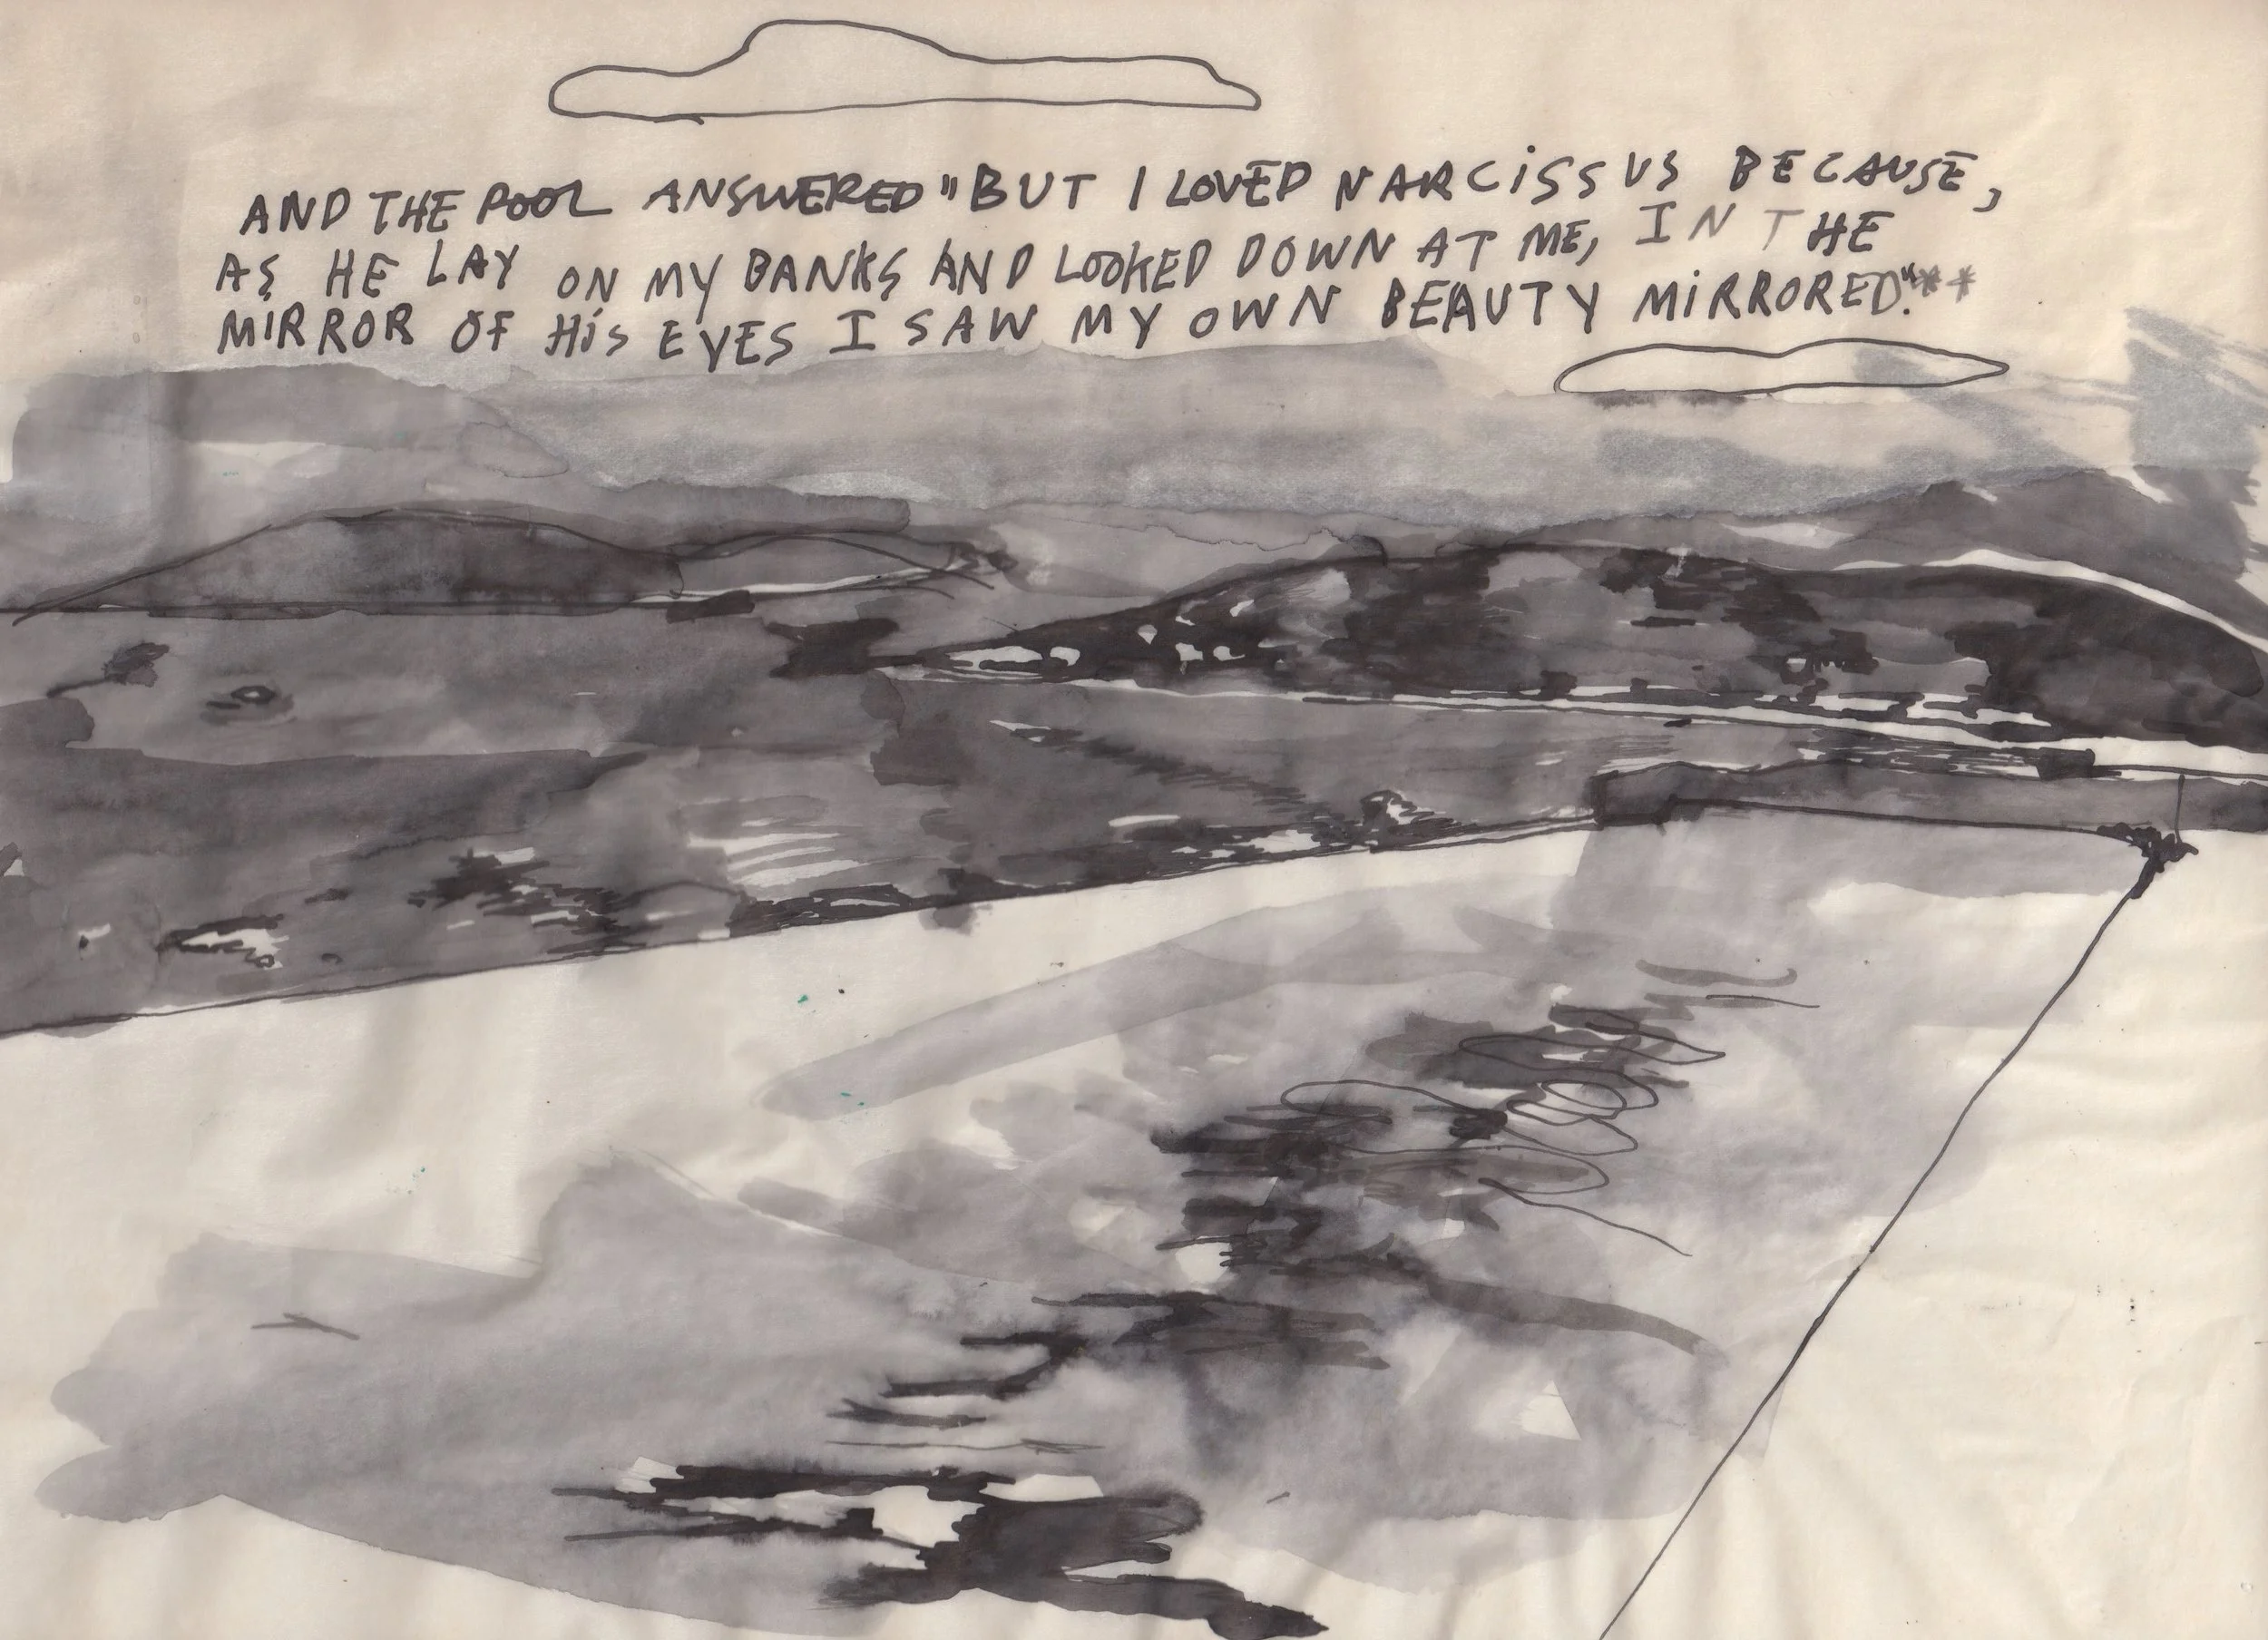 AND THE POOL ANSWERED "BUT I LOVED NARCISSUS BECAUSE,
AS HE LAY ON MY BANKS AND LOOKED DOWN AT ME, IN THE
MIRROR OF HIS EYES I SAW MY OWN BEAUTY MIRRORED."**